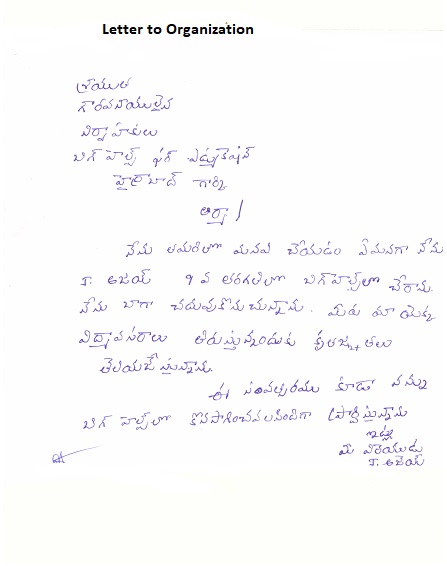 Letter to Organization
శ్రీయుత
గౌరవనీయులైన
నిర్వాహకులు
బిగ్ హెల్ప్ ఫర్ ఎడ్యుకేషన్
హైద్రాబాద్ గార్కి
ఆర్యా /
నేను తమరితో మనవి చేయడం ఏమనగా నేను
K. అజయ్ 9 వ తరగతిలో బిగ్ హెల్ప్ లో చేరాను.
నేను బాగా చదువుకొనుచున్నాను. మీరు మా యొక్క
విద్యావసరాలు తీరుస్తున్నందుకు కృతజ్ఞతలు
తెలియజేస్తున్నాను.
ఈ సంవత్సరము కూడా నన్ను
బిగ్ హెల్ప్ లో కొనసాగించవలసిందిగా ప్రార్థిస్తున్నాను
ఇట్లు
మీ విధేయుడు
K. అజయ్